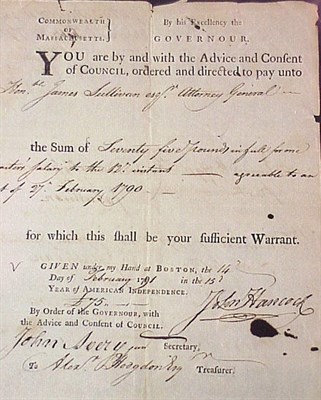 COMMONWEALTH OF MASSACHUSETTS.
By his Excellency the
GOVERNOUR.
YOU are by and with the Advice and Consent
of COUNCIL, ordered and directed to pay unto
Honble. James Sullivan esqr. Attorney General
the Sum of Seventy five pounds in full for one
Salary to the 12th. instant — agreeable to an
of 27th. February 1790 —
for which this shall be your sufficient Warrant.
GIVEN under my Hand at BOSTON, the 14th
Day of February 1791 in the 15th
YEAR of AMERICAN INDEPENDENCE.
£75 —
John Hancock
By Order of the GOVERNOUR, with
the Advice and Consent of COUNCIL.
John Avery junr Secretary.
To Alexr. Hodgdon Esqr Treasurer.